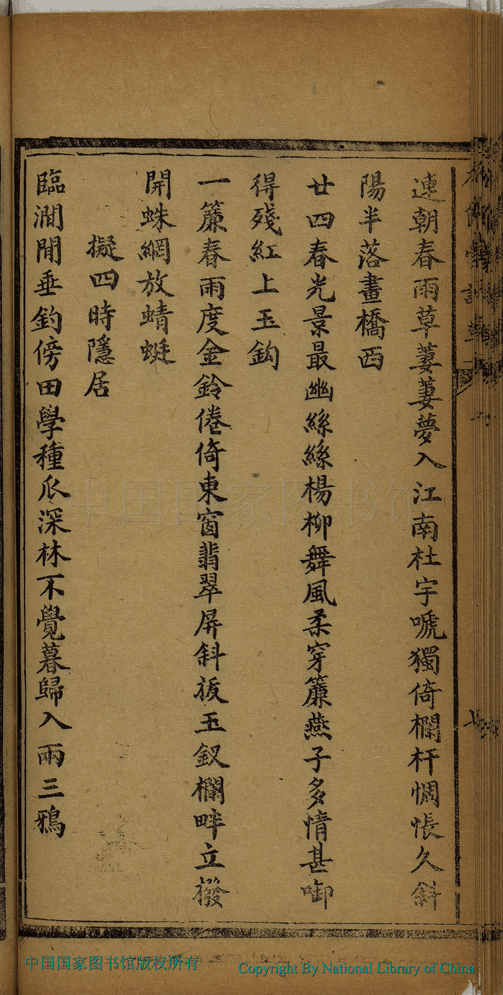 連朝春雨草萋萋夢入江南杜宇嗁獨倚欄杆惆悵久斜
陽半落畫橋西
廿四春光景最幽絲絲楊柳舞風柔穿簾燕子多情甚啣
得殘紅上玉鈎
一簾春雨度金鈴倦倚東窗翡翠屏斜拔玉釵欄畔立撥
開蛛網放蜻蜓
擬四時隱居
臨澗閒垂釣傍田學種瓜深林不覺暮歸入兩三鴉
中国国家图书馆
中国国家图书馆版权所有
Copyright By National Library of China